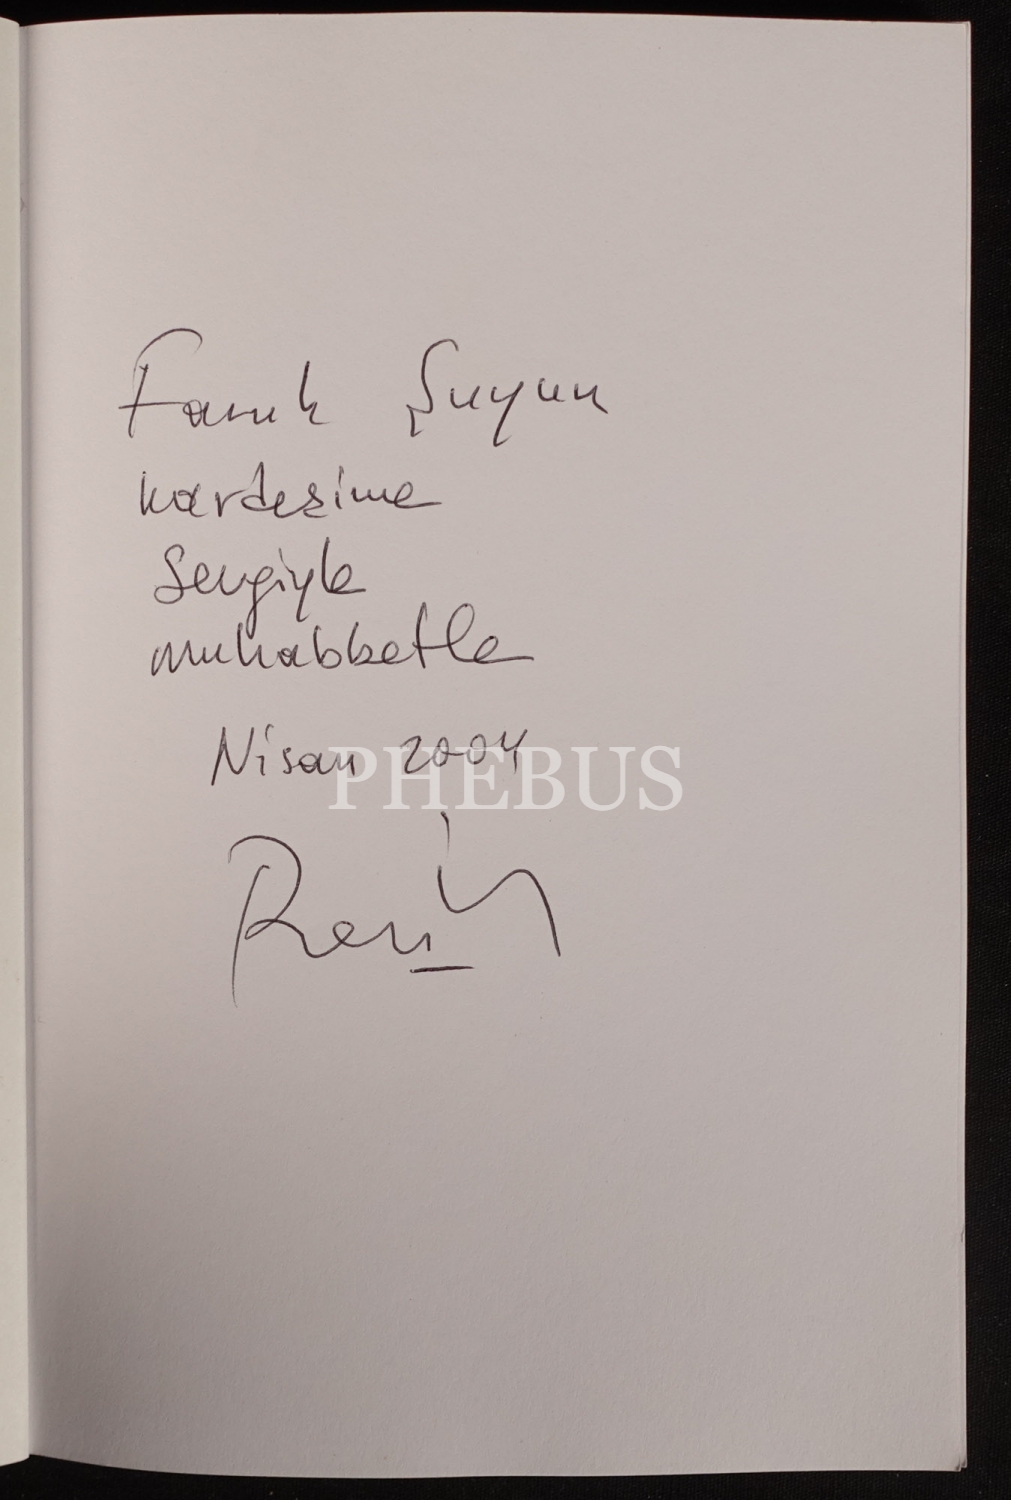 Faruk Şuyun
kardeşime
Sevgiyle
muhabbetle
Nisan 2004
PHEBUS